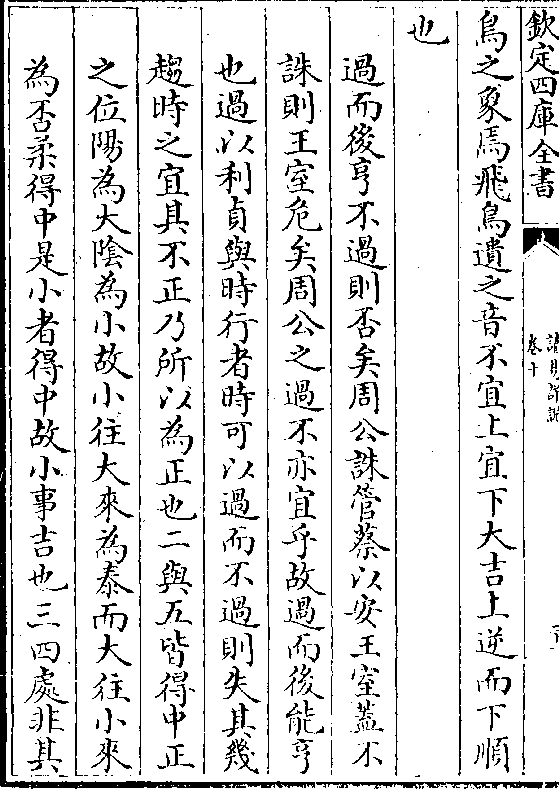 欽定四庫全書
卷十
鳥之象焉飛鳥遺之音不宜上宜下大吉上逆而下順
也
過而後亨不過則否矣周公誅管蔡以安王室蓋不
誅則王室危矣周公之過不亦宜乎故過而後能亨
也過以利貞與時行者時可以過而不過則失其幾
趨時之宜其不正乃所以為正也二與五皆得中正
之位陽為大陰為小故小往大來為泰而大往小來
為否柔得中是小者得中故小事吉也三四處非其